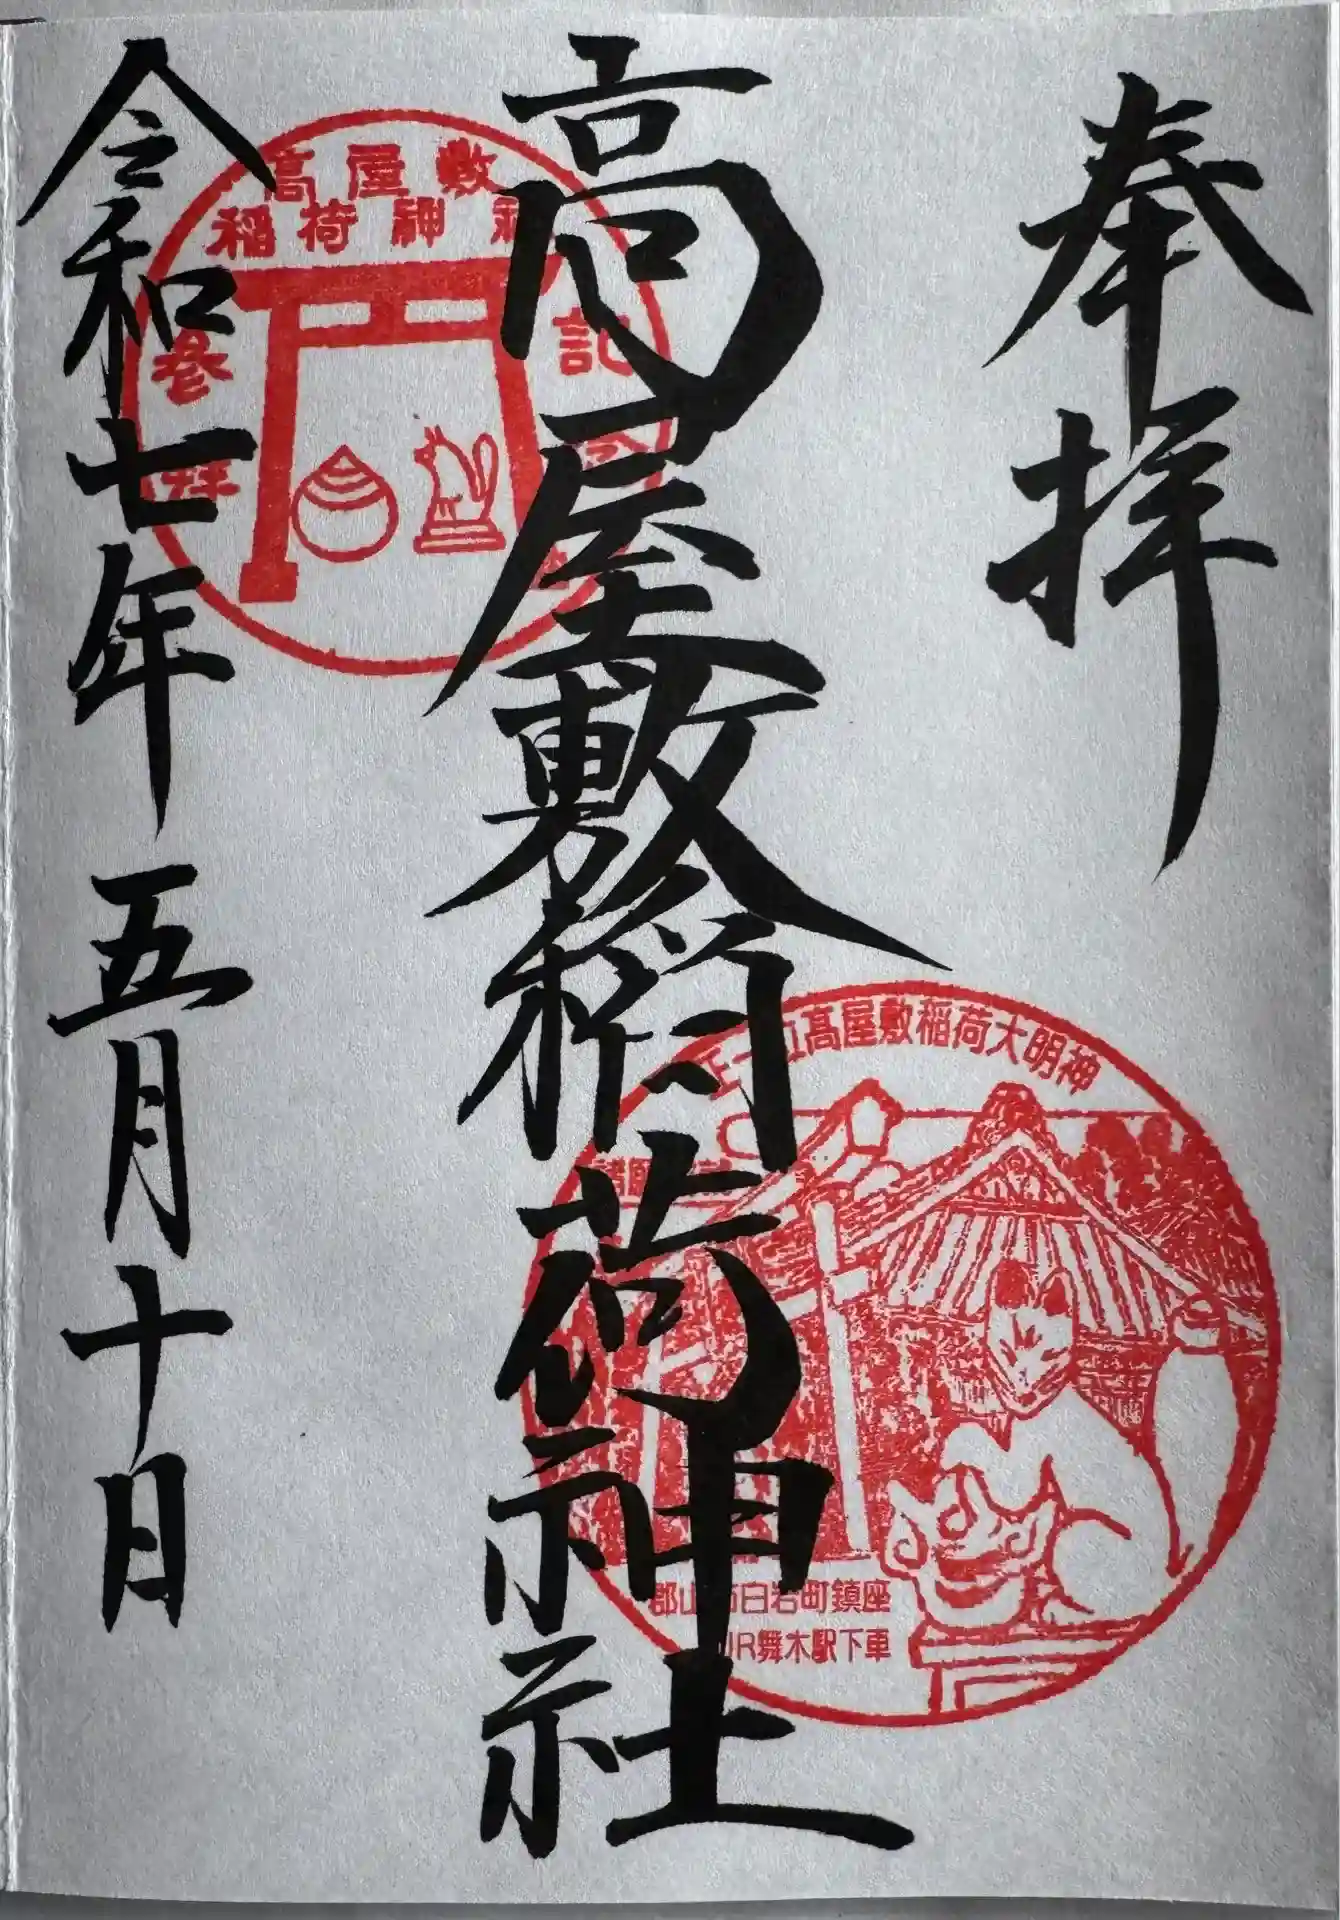 奉拝
高屋敷稲荷神社
令和七年五月十日
髙屋敷
稲荷神社
記
参拝
髙屋敷稲荷大明神
郡山市白岩町鎮座
JR舞木駅下車